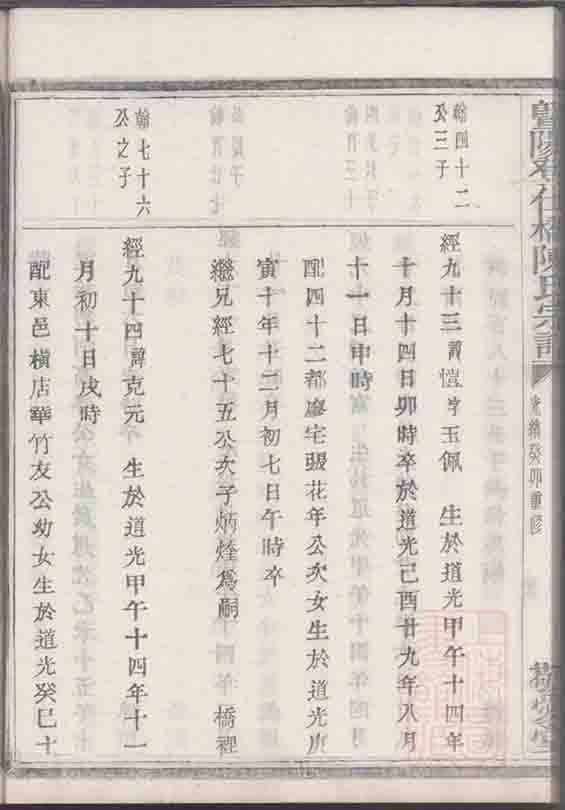 暨陽孝仁橋陳氏宗譜
光緒癸卯重修
翰四十二
公三子
經九十三諱愷字玉佩 生於道光甲午十四年
十月十四日卯時卒於道光己酉廿九年八月
十一日申時
配四十二都廖宅張花年公次女生於道光庚
寅十年十二月初七日午時卒
繼兄經七十五公次子炳煃為嗣 橋裡
翰七十六
公之子
經九十四諱克元 生於道光甲午十四年十一
月初十日戌時
配東邑橫店華竹友公幼女生於道光癸巳十